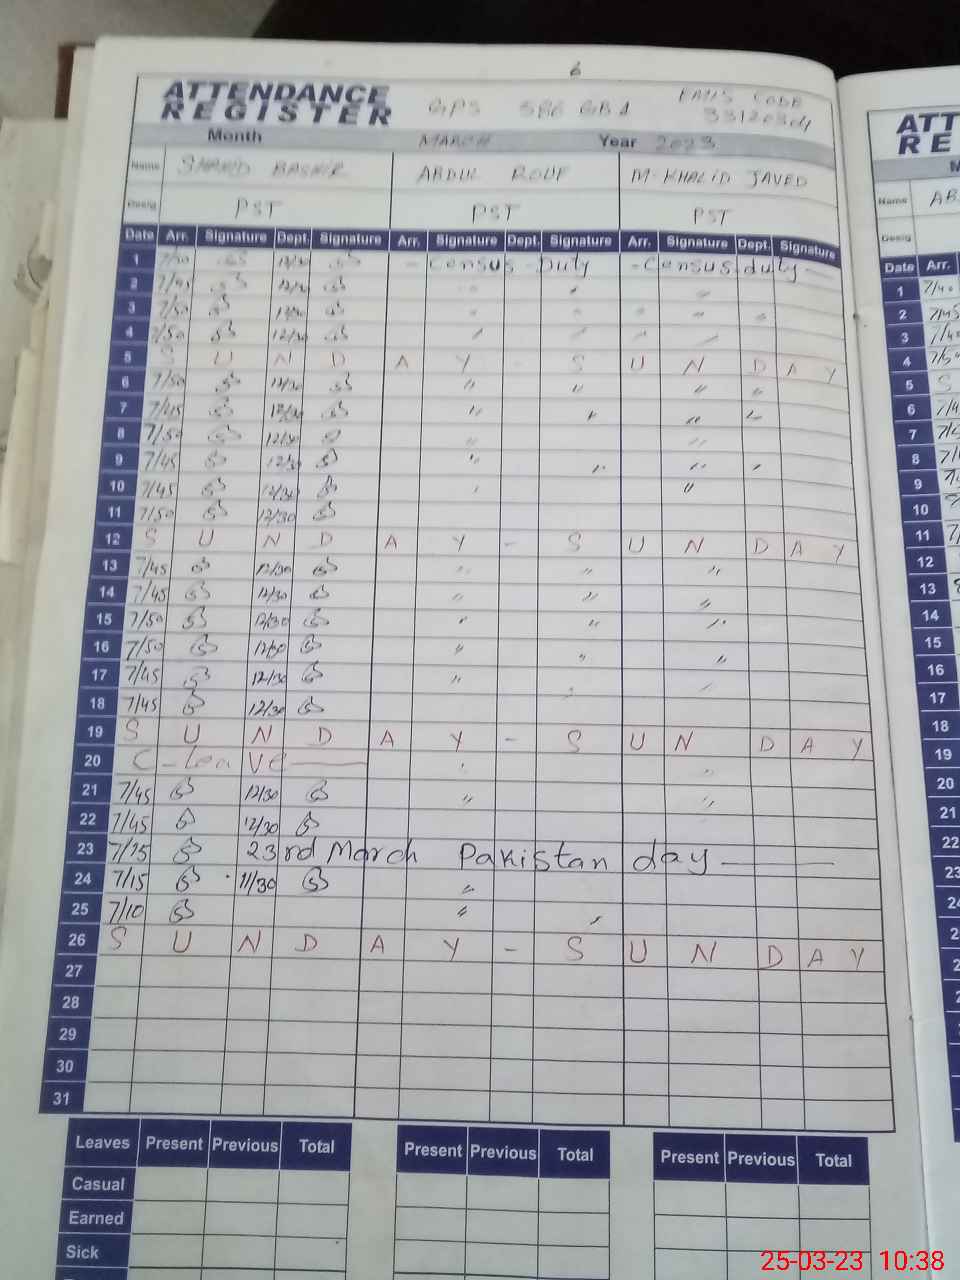 6
ATTENDANCE
REGISTER
GPS 586 GB 1 EMIS CODE
33120304
Month MARCH Year 2023
Name BASHIR ABDUL ROUF M. KHALID JAVED
Desig PST PST PST
Date Arr. Signature Dept. Signature Arr. Signature Dept. Signature Arr. Signature Dept. Signature
1 12/30 - Census Duty - Census duty
2 7/45 12/30 " "
3 7/50 12/30 " " "
4 7/50 12/30 " " " "
5 S U N D A Y - S U N D A Y
6 7/50 12/30 " " " "
7 7/45 12/30 " " " "
8 7/50 12/30 " "
9 7/45 12/30 " " " "
10 7/45 12/30 " "
11 7/50 12/30
12 S U N D A Y - S U N D A Y
13 7/45 12/30 " " "
14 7/45 12/30 " " "
15 7/50 12/30 " " "
16 7/50 12/30 " " "
17 7/45 12/30 " " "
18 7/45 12/30
19 S U N D A Y - S U N D A Y
20 C-leaVe " "
21 7/45 12/30 " "
22 7/45 12/30
23 7/15 23rd March Pakistan day
24 7/15 11/30 "
25 7/10 " "
26 S U N D A Y - S U N D A Y
27
28
29
30
31
Leaves Present Previous Total Present Previous Total Present Previous Total
Casual
Earned
Sick
ATT
RE
Name AB
Desig
Date Arr.
1 7/40
2 7/45
3
4
5 S
6
7
8
9
10
11
12
13
14
15
16
17
18
19
20
21
22
23
24
25-03-23 10:38